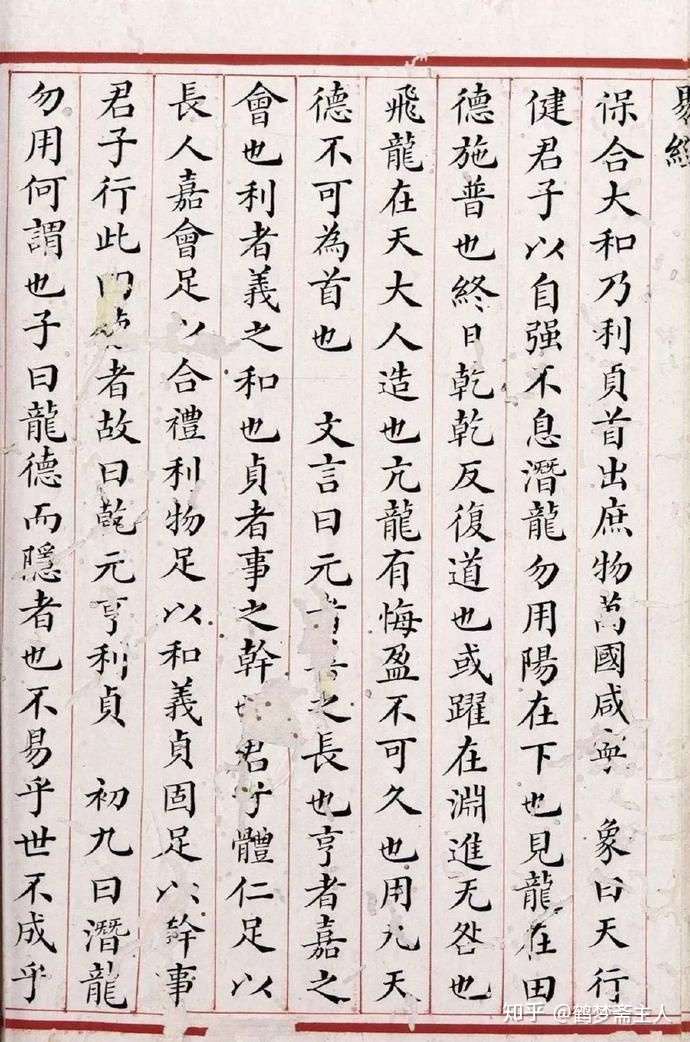 易經
保合大和乃利貞首出庶物萬國咸寧 象曰天行
健君子以自强不息潛龍勿用陽在下也見龍在田
德施普也終日乾乾反復道也或躍在淵進无咎也
飛龍在天大人造也亢龍有悔盈不可久也用九天
德不可為首也 文言曰元者之長也亨者嘉之
會也利者義之和也貞者事之幹也君子體仁足以
長人嘉會足以合禮利物足以和義貞固足以幹事
君子行此四德者故曰乾元亨利貞 初九曰潛龍
勿用何謂也子曰龍德而隱者也不易乎世不成乎
知乎 @鹤梦斋主人